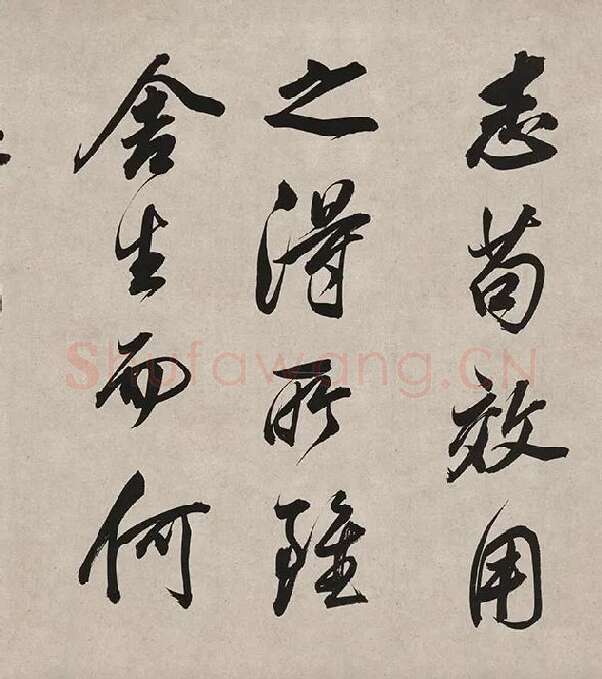 志苟效用
之得所雖
舍生而何
Shufawang.CN